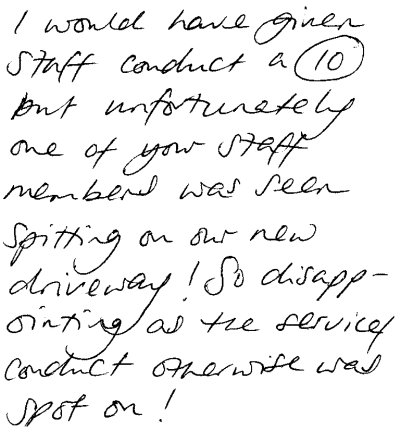 I would have given
staff conduct a 10
but unfortunately
one of your staff
members was seen
spitting on our new
driveway! So disapp-
ointing as the service/
conduct otherwise was
spot on!